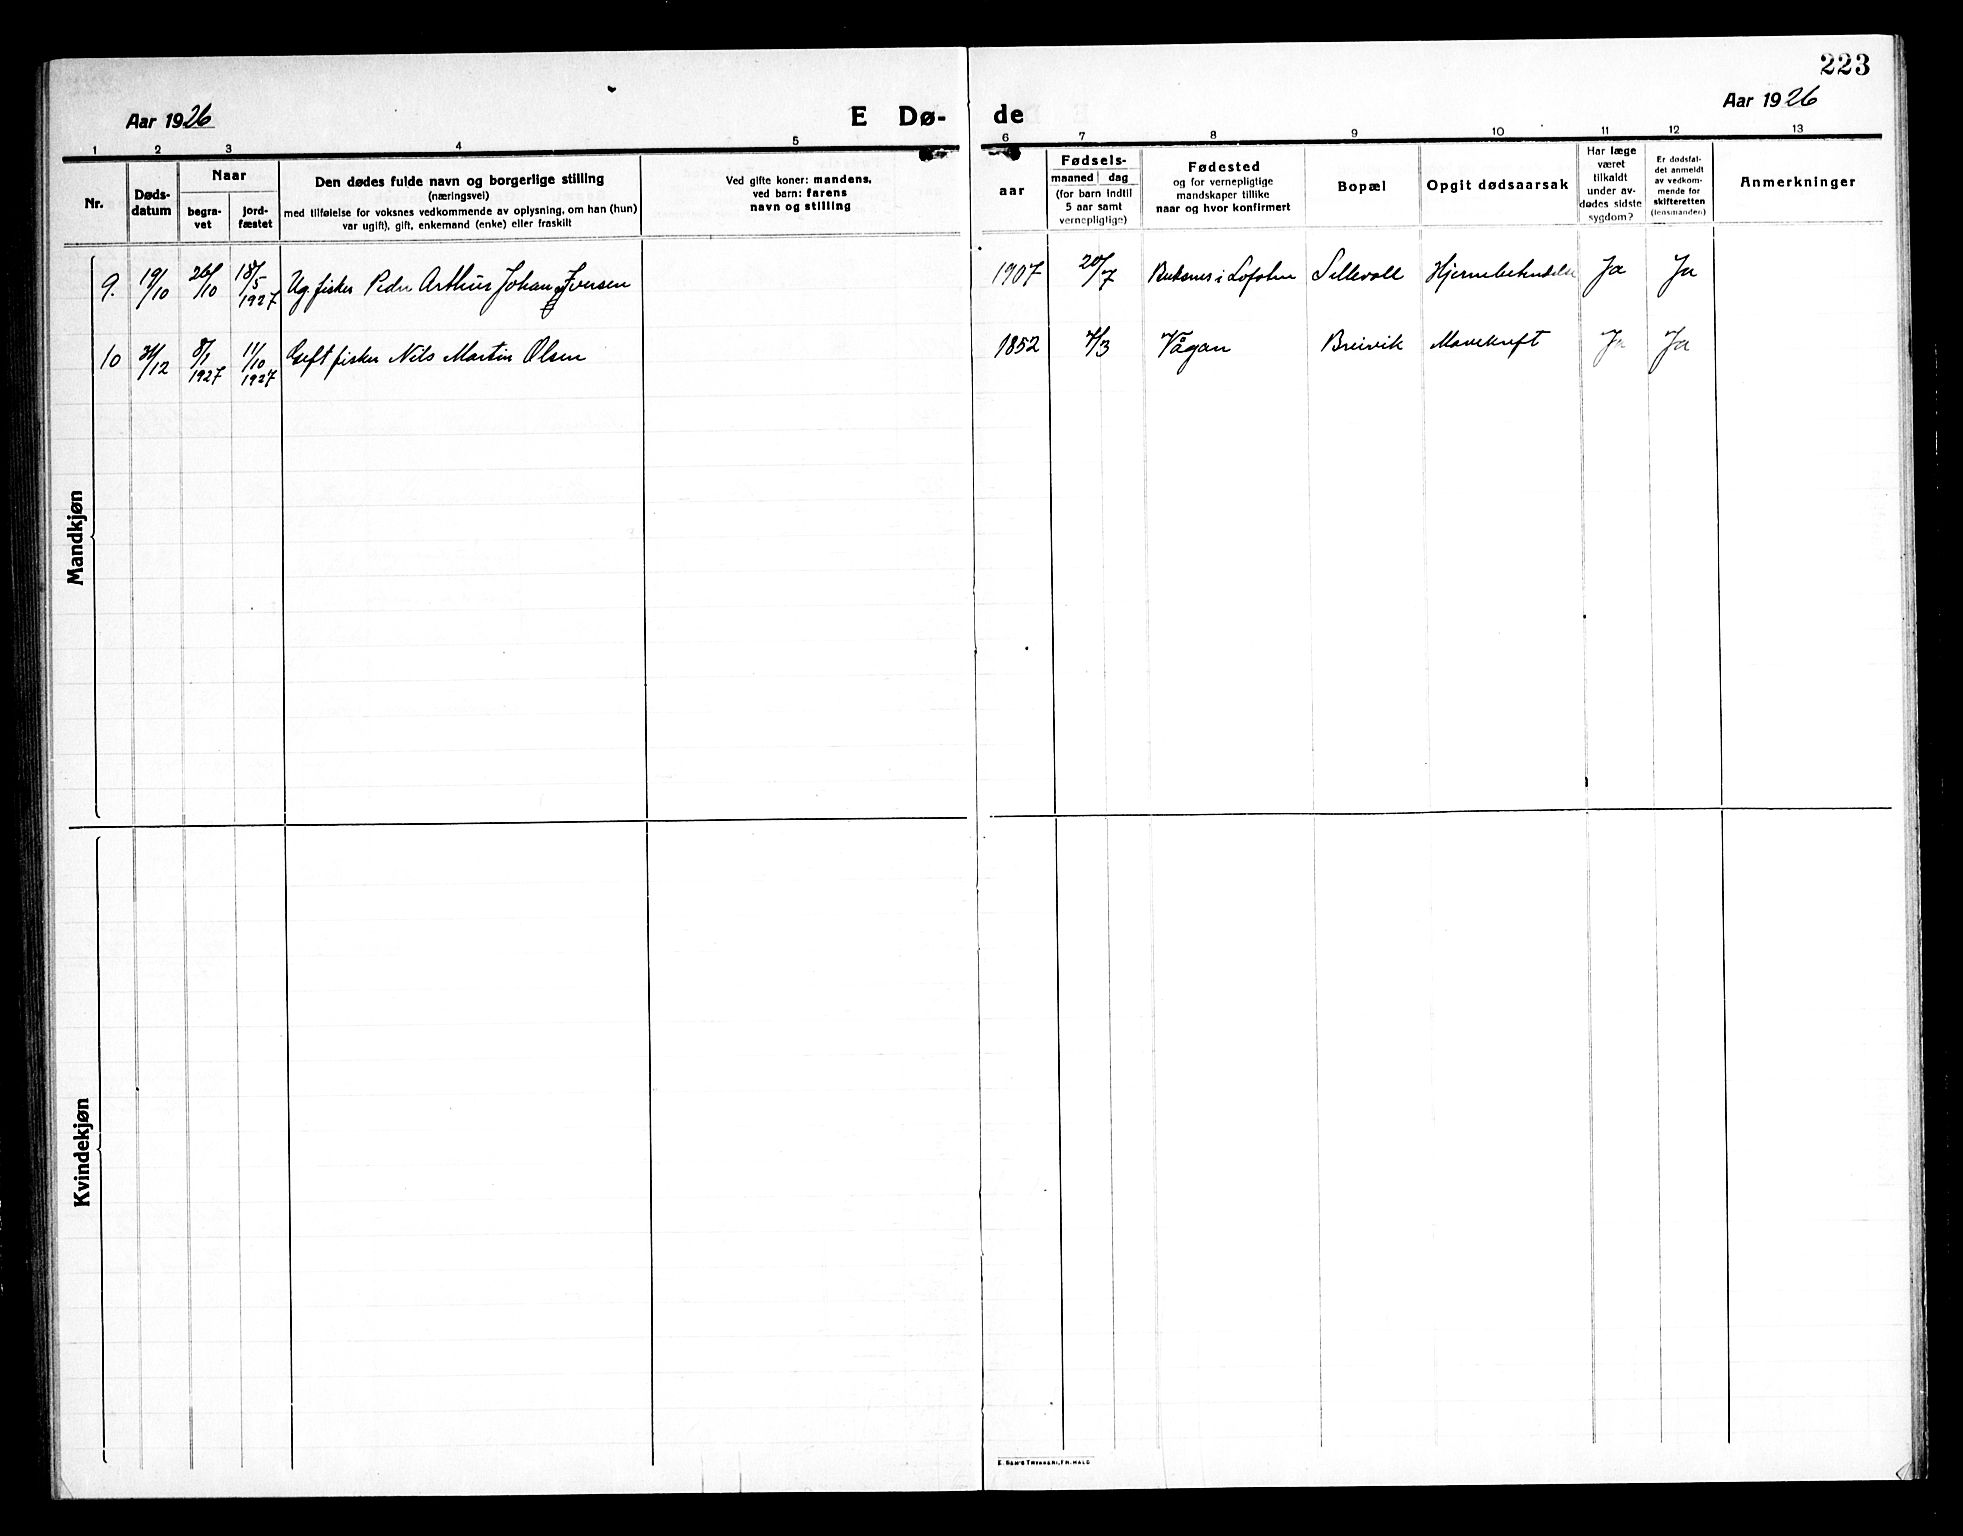 223
Aar 1926
E Dø-
de
Aar 1926
1 2 3 4 5 6 7 8 9 10 11 12 13
Nr.
Døds-
datum
Naar
begra-
vet
jord-
fæstet
Den dødes fulde navn og borgerlige stilling
(næringsvei)
med tilføielse for voksnes vedkommende av oplysning, om han (hun)
var ugift), gift, enkemand (enke) eller fraskilt
Ved gifte koner: mandens,
ved barn: farens
navn og stilling
aar
Fødsels-
maaned dag
(for barn indtil
5 aar samt
vernepligtige)
Fødested
og for vernepligtige
mandskaper tillike
naar og hvor konfirmert
Bopæl
Opgit dødsaarsak
Har læge
været
tilkaldt
under av-
dødes sidste
sygdom?
Er dødsfal-
det anmeldt
av vedkom-
mende for
skifteretten
(lensmanden)
Anmerkninger
Mandkjøn
9. 19/10 26/10 18/5 1927 Ug fisker Peder Arthur Johan Iversen 1907 20/7 Buksnes i Lofoten Sellevoll Hjernebetendelse Ja Ja
10 31/12 8/1 1927 11/10 1927 Gift fisker Nils Martin Olsen 1852 4/3 Vågan Breivik Mavekreft Ja Ja
Kvindekjøn
E. SEM'S TRYKKERI, FR.HALD